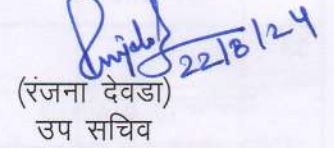 22/8/24
(रंजना देवडा)
उप सचिव